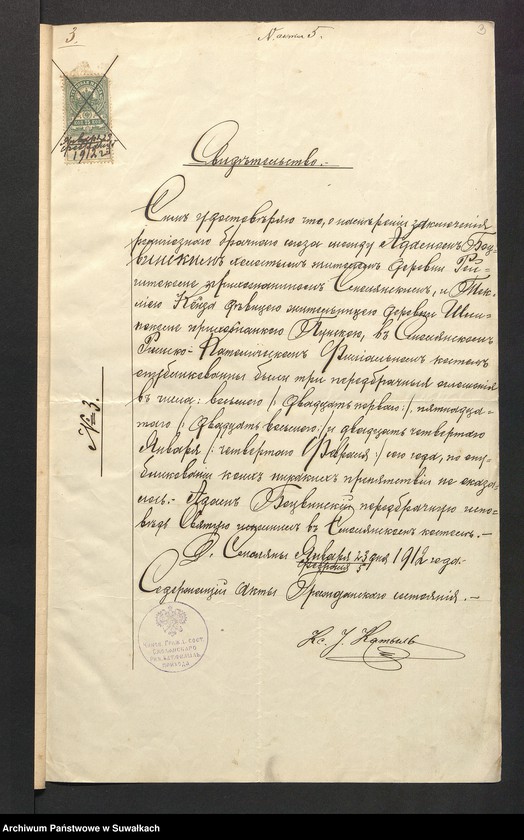 3
N. акта 5.
3
Января 23
Февраля 5
1912 г.
Свидѣтельство.-
Симъ удостовѣряю что, о намѣреніи заключенія
религіознаго брачнаго союза между Адамомъ Боц-
винскимъ холостымъ жителемъ деревни
прихожаниномъ Смолянскимъ, и
дѣвицею жительницею деревни
прихожанкою Пунскою, въ Смолянскомъ
Римско-Католическомъ Филіальномъ костелѣ
опубликованы были три предбрачныя оглашенія
въ числа: восьмого /: двадцать перваго :/, пятнадца-
таго /: двадцать восьмого :/ и двадцать четвертаго
Января /: четвертаго Февраля :/ сего года, по опу-
бликованіи коихъ никакихъ препятствій не оказа-
лось.- Адамъ Боцвинскій предбрачную испо-
вѣдь Святую исполнилъ въ Смолянскомъ костелѣ.-
Д. Смоляны Января 23 дня 1912 года.-
Февраля 5
Содержащій Акты Гражданскаго состоянія.-
№ 3.
Archiwum Państwowe w Suwałkach